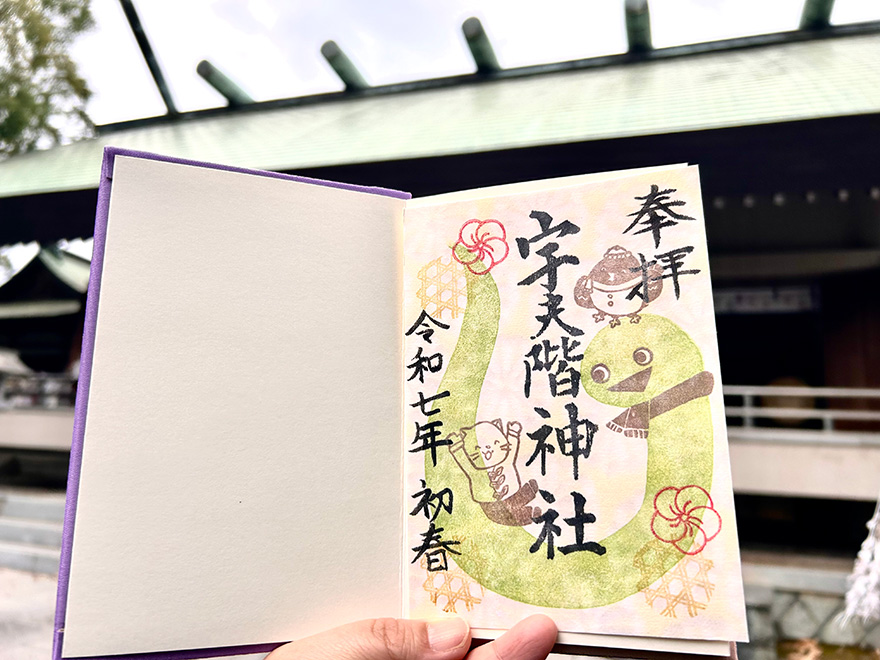 奉拝
宇夫階神社
令和七年 初春